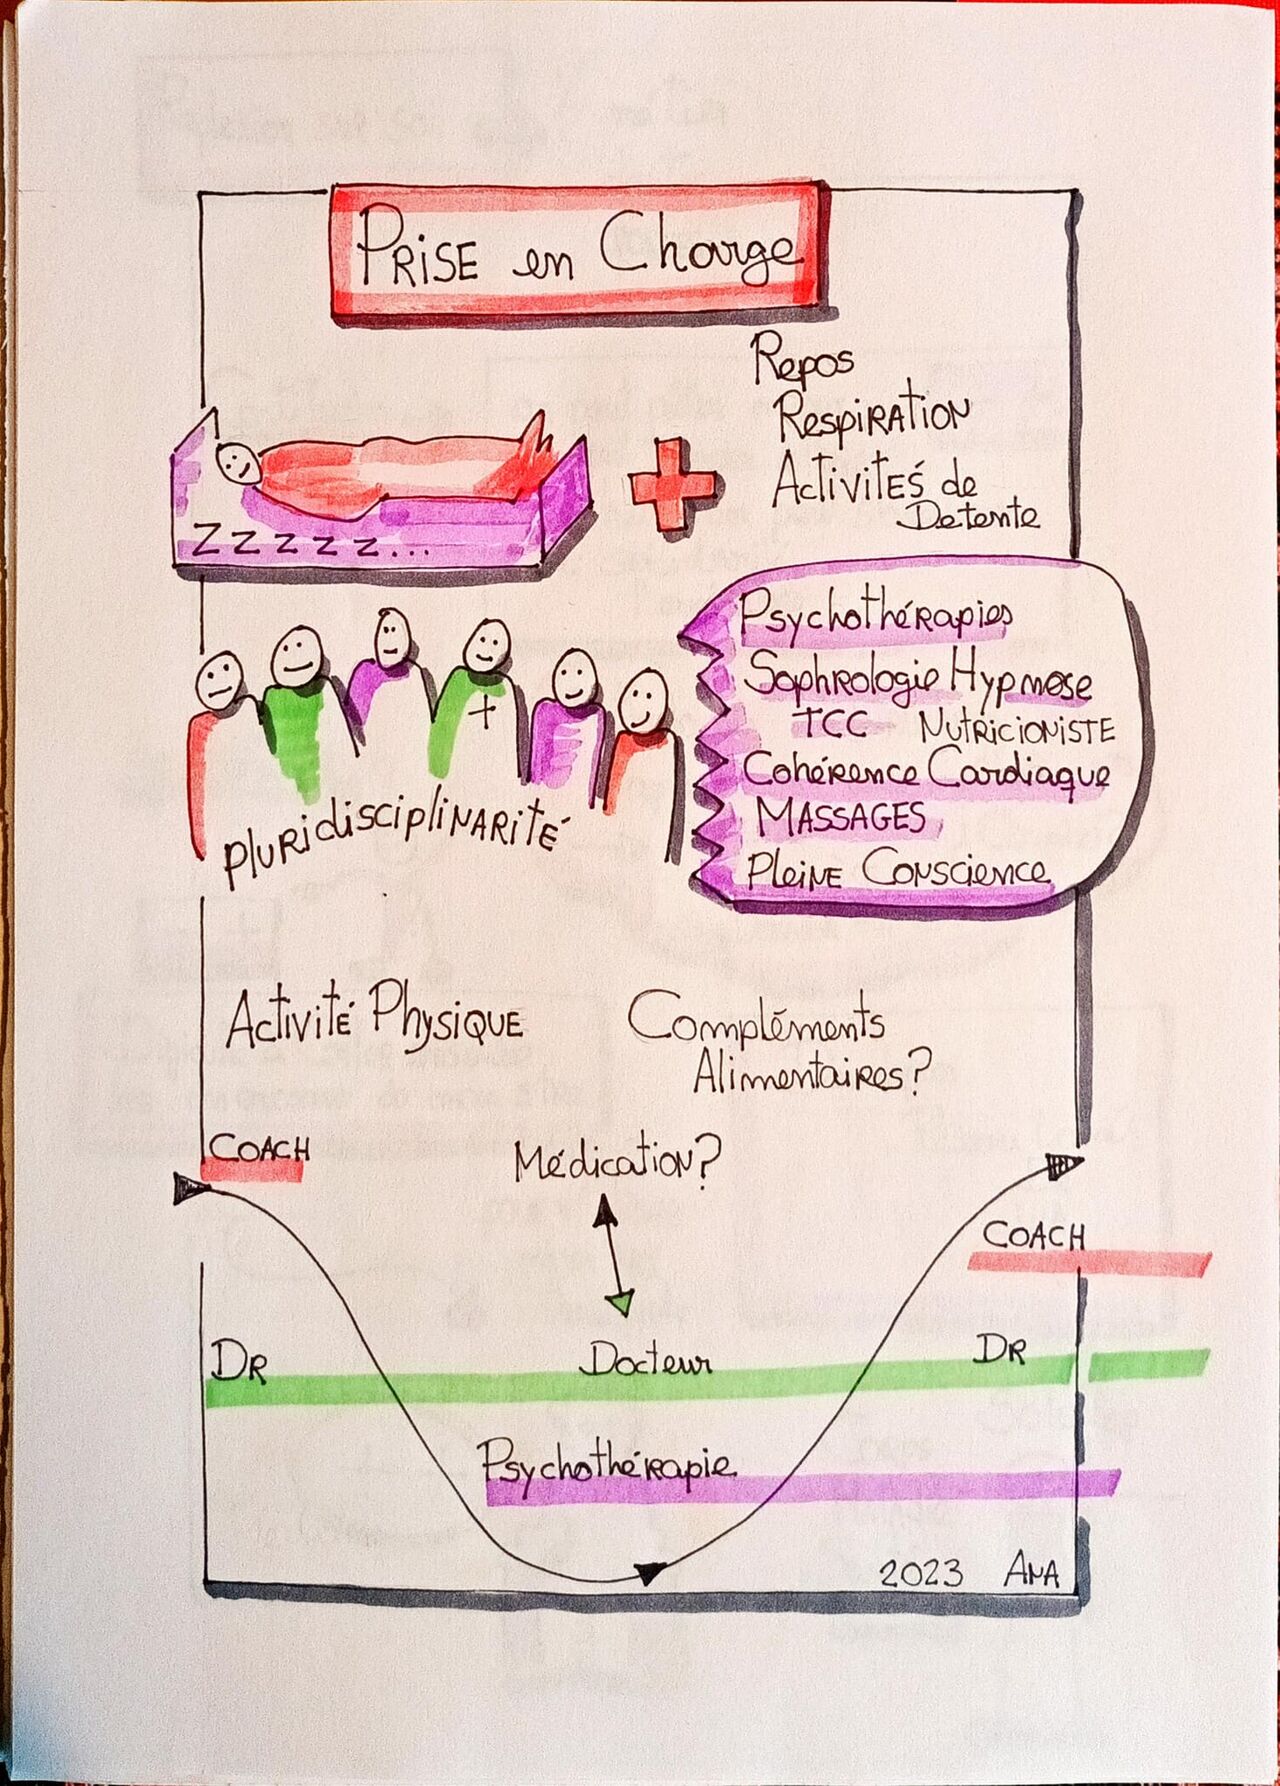 PRISE en Charge
Repos
RespiRATION
Activités de
Detente
Zzzzz...
Psychothérapies
Sophrologie Hypnose
TCC NUTRICIONISTE
Cohérence Cardiaque
MASSAGES
PleiNE Conscience
pluridisciplinarité
Activité Physique
Compléments
Alimentaires?
COACH
Médication?
COACH
DR Docteur DR
Psychothérapie
2023 ANA